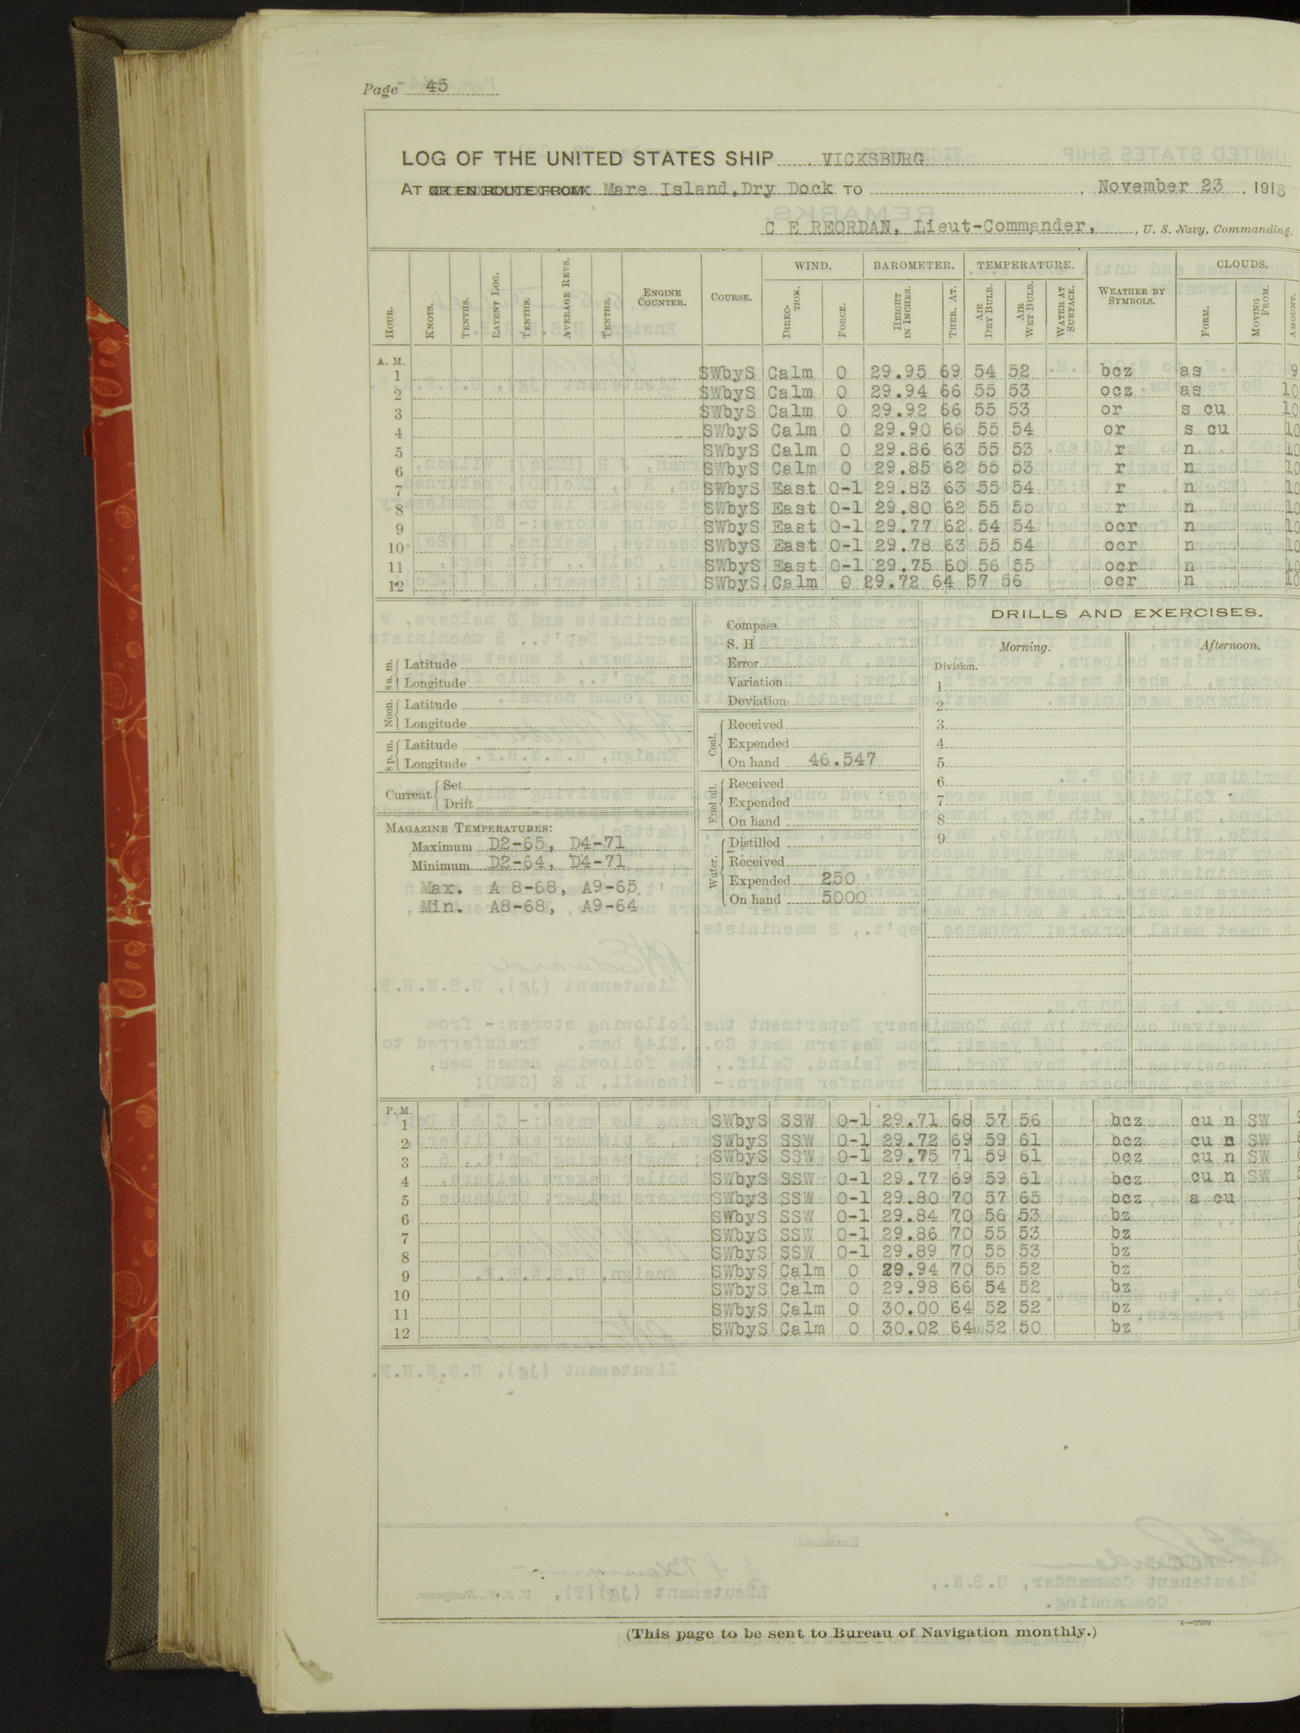 Page 45
LOG OF THE UNITED STATES SHIP VICKSBURG
AT OR EN ROUTE FROM Mare Island, Dry Dock TO , November 23, 1918
C E REORDAN, Lieut-Commander, , U. S. Navy, Commanding.
WIND. BAROMETER. TEMPERATURE. CLOUDS.
HOUR. KNOTS. TENTHS. PATENT LOG. TENTHS. AVERAGE REVS. TENTHS. ENGINE COUNTER. COURSE. DIRECTION. FORCE. HEIGHT IN INCHES. THER. AT. AIR DRY BULB. AIR WET BULB. WATER AT SURFACE. WEATHER BY SYMBOLS. FORM. MOVING FROM. AMOUNT.
A. M.
1 SWbyS Calm 0 29.95 69 54 52 bcz as 9
2 SWbyS Calm 0 29.94 66 55 53 ocz as 10
3 SWbyS Calm 0 29.92 66 55 53 or s cu 10
4 SWbyS Calm 0 29.90 66 55 54 or s cu 10
5 SWbyS Calm 0 29.86 63 55 53 r n 10
6 SWbyS Calm 0 29.85 62 55 53 r n 10
7 SWbyS East 0-1 29.83 63 55 54 r n 10
8 SWbyS East 0-1 29.80 62 55 55 r n 10
9 SWbyS East 0-1 29.77 62 54 54 ocr n 10
10 SWbyS East 0-1 29.78 63 55 54 ocr n 10
11 SWbyS East 0-1 29.75 60 56 55 ocr n 10
12 SWbyS Calm 0 29.72 64 57 56 ocr n 10
DRILLS AND EXERCISES.
Compass
S. H
Error
Variation
Deviation
Morning. Afternoon.
Division.
1
2
3
4
5
6
7
8
9
8 a. m. Latitude
Longitude
Noon. Latitude
Longitude
8 p. m. Latitude
Longitude
Current Set
Drift
Coal. Received
Expended
On hand 46.547
Fuel oil. Received
Expended
On hand
Water. Distilled
Received
Expended 250
On hand 5000
MAGAZINE TEMPERATURES:
Maximum D2-65, D4-71
Minimum D2-64, D4-71
Max. A 8-68, A9-65
Min. A8-68, A9-64
P. M.
1 SWbyS SSW 0-1 29.71 68 57 56 bcz cu n SW
2 SWbyS SSW 0-1 29.72 69 59 61 bcz cu n SW
3 SWbyS SSW 0-1 29.75 71 59 61 bcz cu n SW
4 SWbyS SSW 0-1 29.77 69 59 61 bcz cu n SW
5 SWbyS SSW 0-1 29.80 70 57 65 bcz a cu
6 SWbyS SSW 0-1 29.84 70 56 53 bz
7 SWbyS SSW 0-1 29.86 70 55 53 bz
8 SWbyS SSW 0-1 29.89 70 55 53 bz
9 SWbyS Calm 0 29.94 70 55 52 bz
10 SWbyS Calm 0 29.98 66 54 52 bz
11 SWbyS Calm 0 30.00 64 52 52 bz
12 SWbyS Calm 0 30.02 64 52 50 bz
(This page to be sent to Bureau of Navigation monthly.)